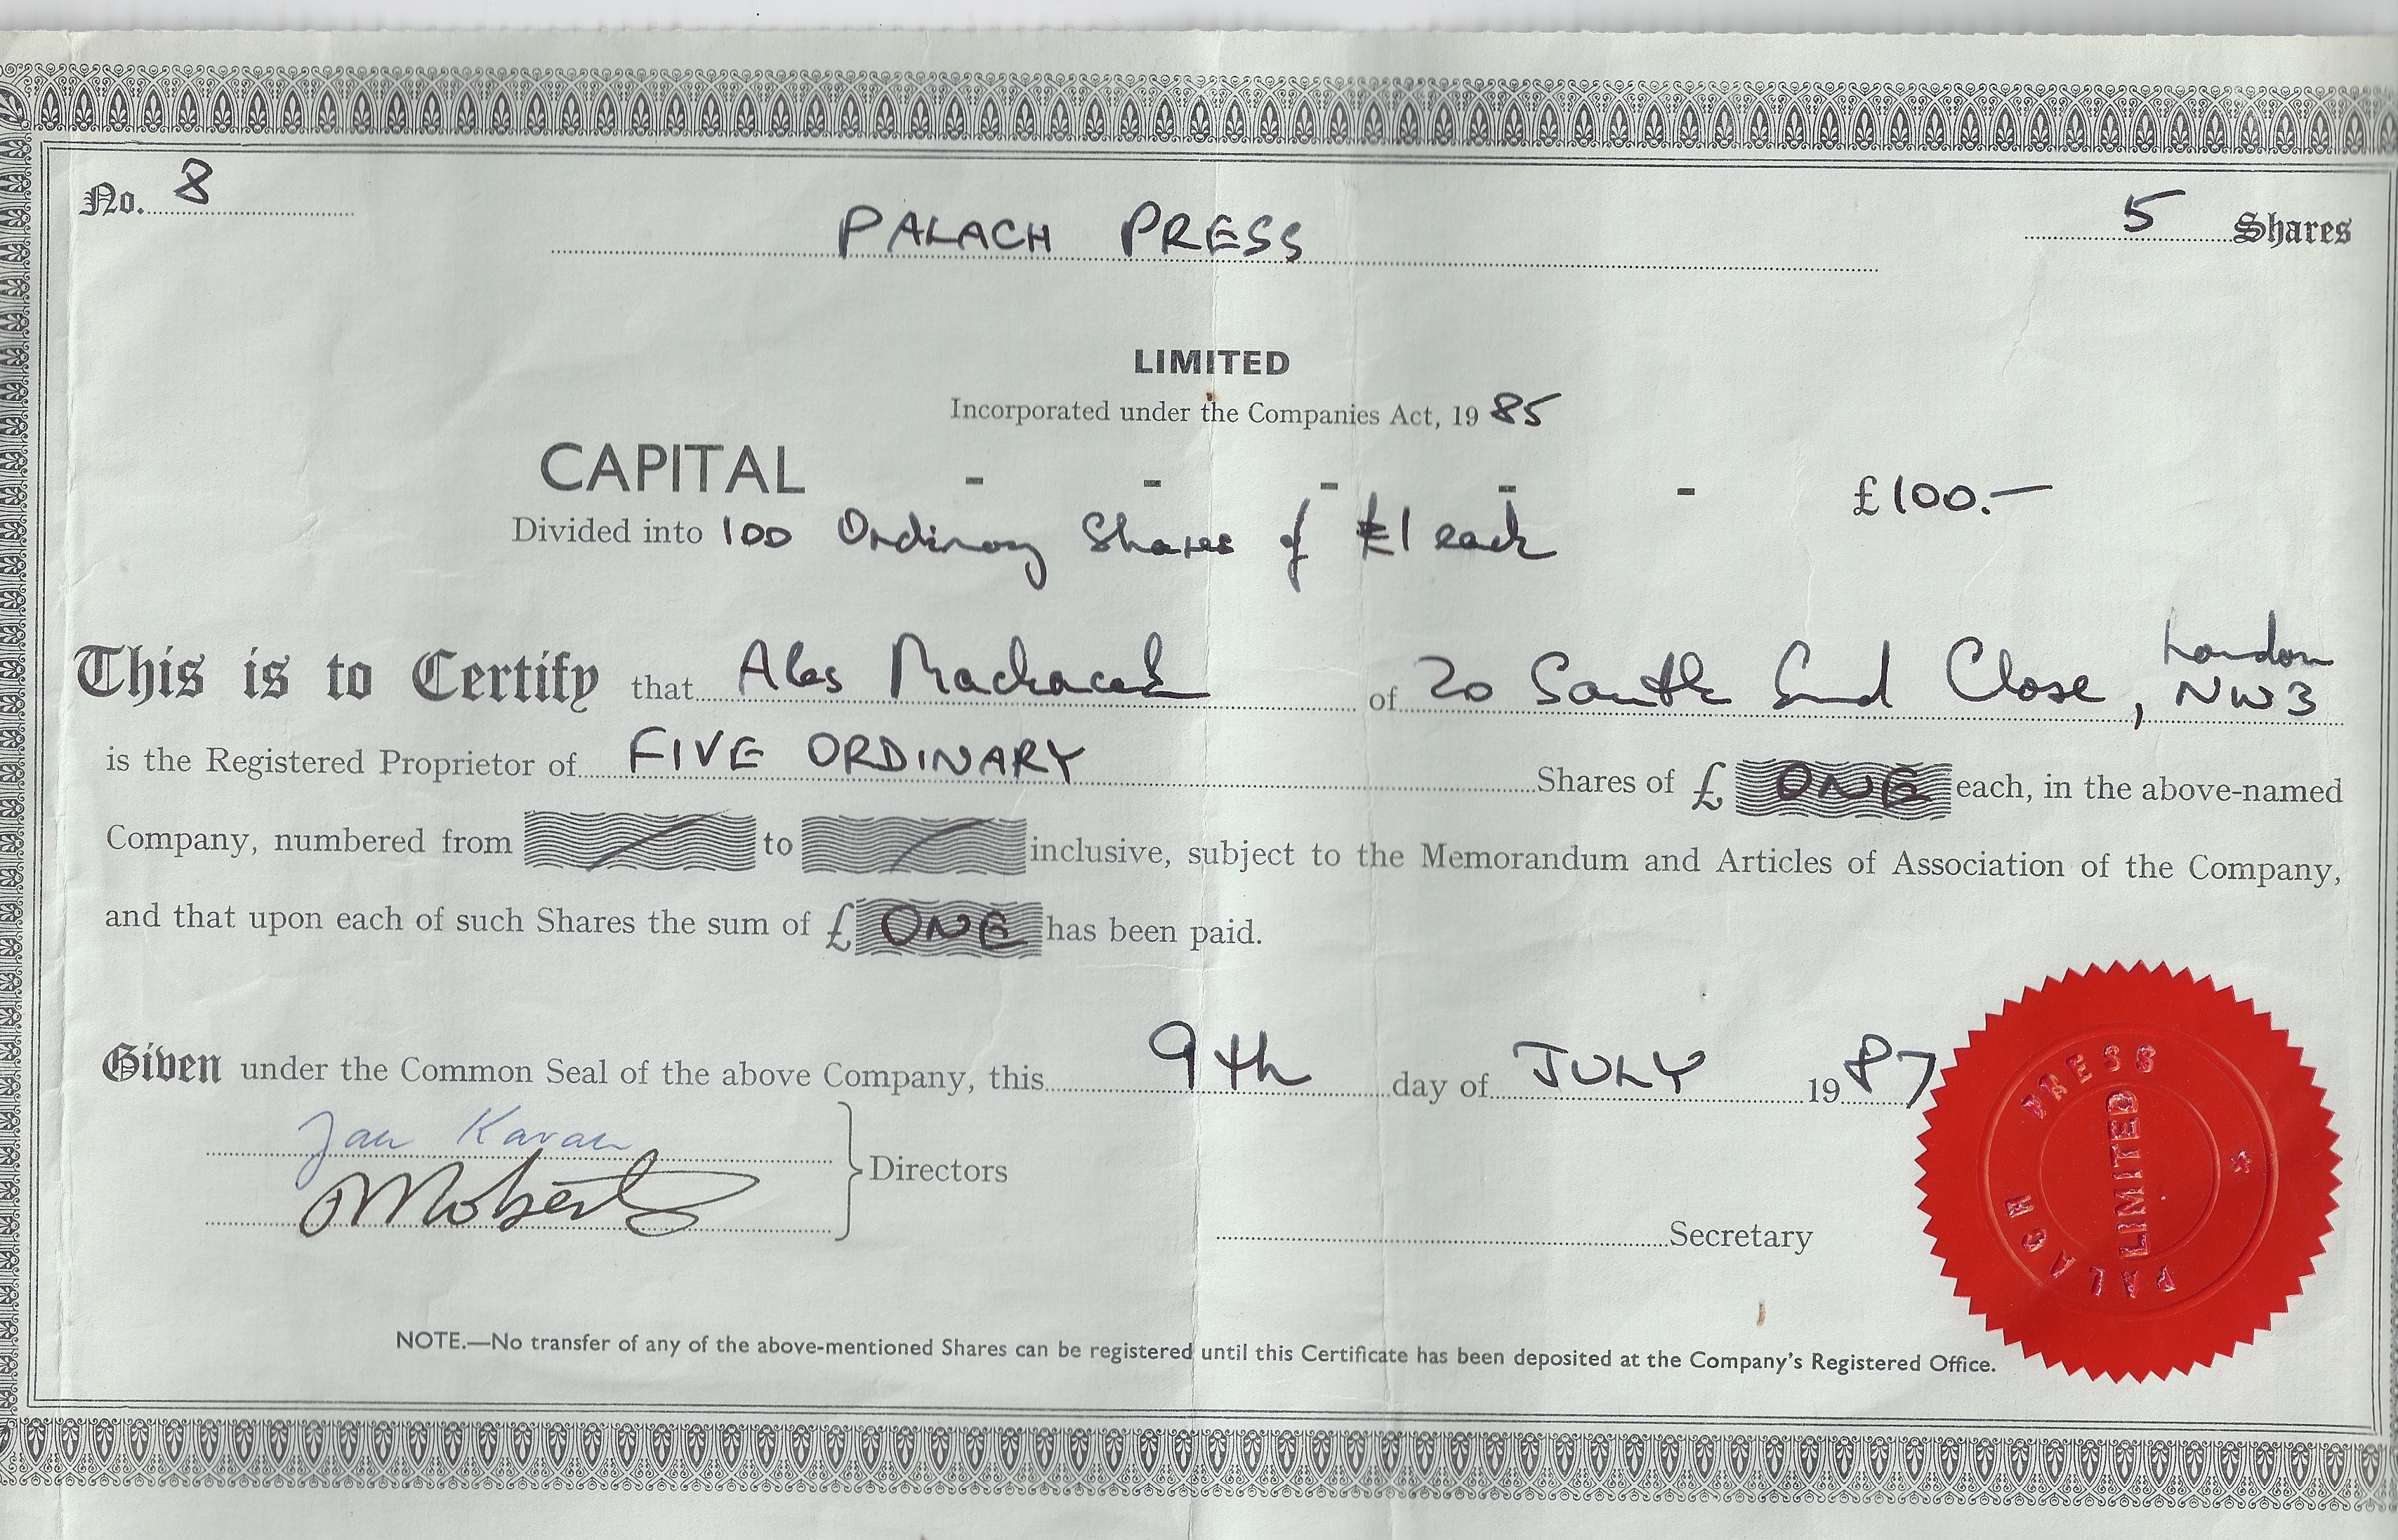 No. 8
PALACH PRESS
5 Shares
LIMITED
Incorporated under the Companies Act, 1985
CAPITAL - - - - - £100.—
Divided into 100 Ordinary Shares of £1 each
This is to Certify that Ales Machacek of 20 South End Close, London NW3
is the Registered Proprietor of FIVE ORDINARY Shares of £ ONE each, in the above-named
Company, numbered from to inclusive, subject to the Memorandum and Articles of Association of the Company,
and that upon each of such Shares the sum of £ ONE has been paid.
Given under the Common Seal of the above Company, this 9th day of JULY 1987
Jan Kavan
Directors
Secretary
PALACH PRESS
LIMITED
NOTE.—No transfer of any of the above-mentioned Shares can be registered until this Certificate has been deposited at the Company's Registered Office.